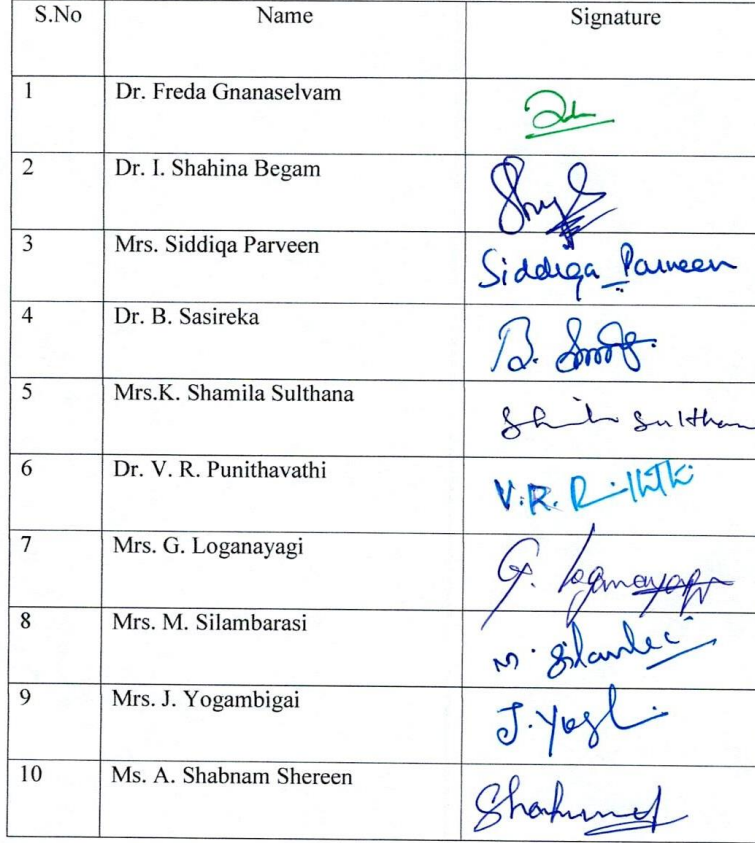 S.No Name Signature
1 Dr. Freda Gnanaselvam
2 Dr. I. Shahina Begam
3 Mrs. Siddiqa Parveen Siddiqa Parveen
4 Dr. B. Sasireka B.
5 Mrs.K. Shamila Sulthana
6 Dr. V. R. Punithavathi V.R.
7 Mrs. G. Loganayagi G. Loganayagi
8 Mrs. M. Silambarasi M.
9 Mrs. J. Yogambigai J.
10 Ms. A. Shabnam Shereen